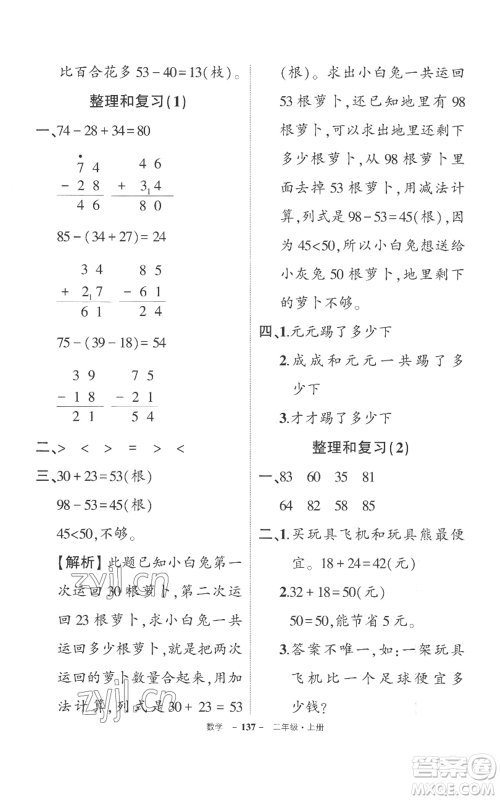 比百合花多 53－40＝13(枝)。
整理和复习(1)
一、74－28＋34＝80
7 4   4 6
－ 2 8   ＋ 3 4
4 6   8 0
85－(34＋27)＝24
3 4   8 5
＋ 2 7   － 6 1
6 1   2 4
75－(39－18)＝54
3 9   7 5
－ 1 8   － 2 1
2 1   5 4
二、＞ ＜ ＞ ＝ ＞ ＜
三、30＋23＝53(根)
98－53＝45(根)
45<50,不够。
【解析】此题已知小白兔第一
次运回 30 根萝卜,第二次运
回 23 根萝卜,求小白兔一共
运回多少根萝卜,就是把两次
运回的萝卜数量合起来,用加
法计算,列式是 30＋23＝53
(根)。求出小白兔一共运回
53 根萝卜,已知地里有 98
根萝卜,求地里还剩下
多少根萝卜,从 98 根萝卜里
面去掉 53 根萝卜,用减法计
算,列式是 98－53＝45(根),因为
45<50,所以小白兔想送给
小灰兔 50 根萝卜,地里剩下
的萝卜不够。
四、1.元元踢了多少下
2.成成和元元一共踢了多
少下
3.才才踢了多少下
整理和复习(2)
一、83 60 35 81
64 82 58 85
二、1.买玩具飞机和玩具熊最便
宜。18＋24＝42(元)
2.32＋18＝50(元)
50＝50,能节省 5 元。
3.答案不唯一,如:一架玩具
飞机比一个足球便宜多
少钱?
数学 －137－ 二年级·上册
zyjl.cn
zyjl.cn